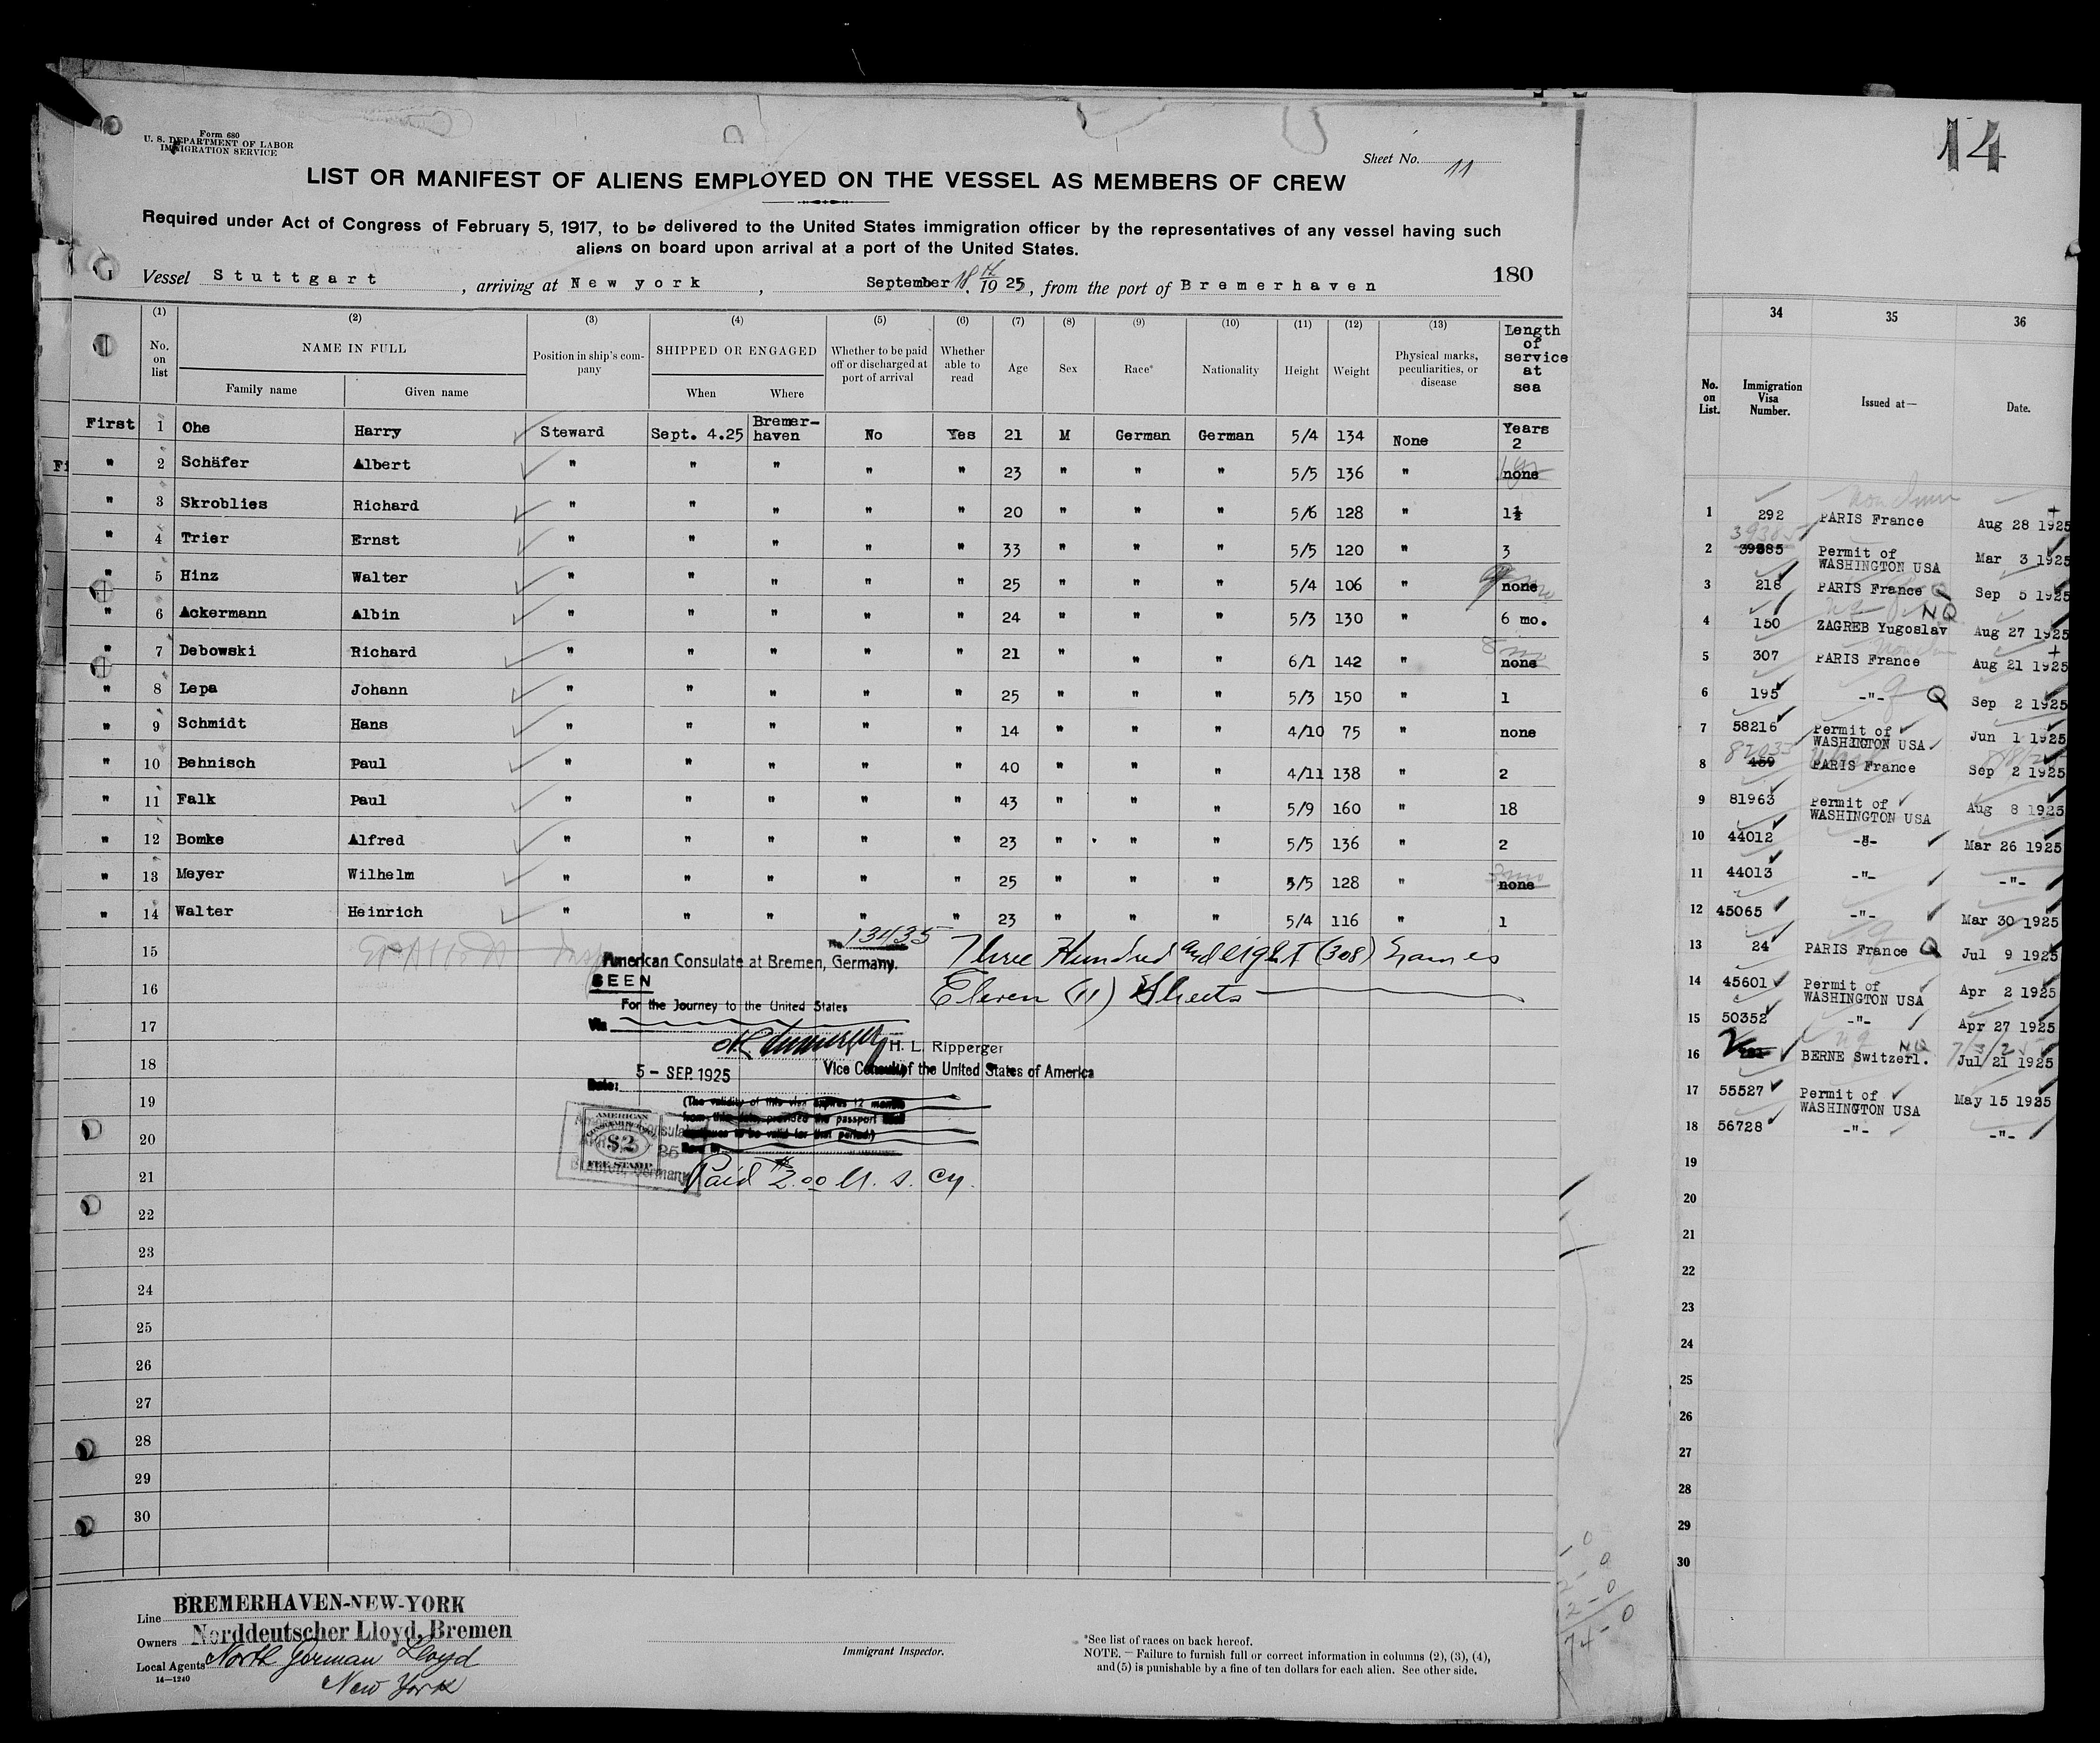 Form 680
U. S. DEPARTMENT OF LABOR
IMMIGRATION SERVICE
Sheet No. 11
LIST OR MANIFEST OF ALIENS EMPLOYED ON THE VESSEL AS MEMBERS OF CREW
Required under Act of Congress of February 5, 1917, to be delivered to the United States immigration officer by the representatives of any vessel having such
aliens on board upon arrival at a port of the United States.
Vessel Stuttgart, arriving at New york, September 18th, 1925, from the port of Bremerhaven 180
(1) (2) (3) (4) (5) (6) (7) (8) (9) (10) (11) (12) (13)
No. on list NAME IN FULL Family name Given name Position in ship's company SHIPPED OR ENGAGED When Where Whether to be paid off or discharged at port of arrival Whether able to read Age Sex Race* Nationality Height Weight Physical marks, peculiarities, or disease Length of service at sea
First 1 Ohe Harry Steward Sept. 4.25 Bremer-haven No Yes 21 M German German 5/4 134 None Years 2
" 2 Schäfer Albert " " " " " 23 " " " 5/5 136 " none
" 3 Skroblies Richard " " " " " 20 " " " 5/6 128 " 1½
" 4 Trier Ernst " " " " " 33 " " " 5/5 120 " 3
" 5 Hinz Walter " " " " " 25 " " " 5/4 106 " none
" 6 Ackermann Albin " " " " " 24 " " " 5/3 130 " 6 mo.
" 7 Debowski Richard " " " " " 21 " " " 6/1 142 " none
" 8 Lepa Johann " " " " " 25 " " " 5/3 150 " 1
" 9 Schmidt Hans " " " " " 14 " " " 4/10 75 " none
" 10 Behnisch Paul " " " " " 40 " " " 4/11 138 " 2
" 11 Falk Paul " " " " " 43 " " " 5/9 160 " 18
" 12 Bomke Alfred " " " " " 23 " " " 5/5 136 " 2
" 13 Meyer Wilhelm " " " " " 25 " " " 5/5 128 " none
" 14 Walter Heinrich " " " " " 23 " " " 5/4 116 " 1
15
16
17
18
19
20
21
22
23
24
25
26
27
28
29
30
No 13435
American Consulate at Bremen, Germany.
SEEN
For the Journey to the United States
Via
H. L. Ripperger
Vice Consul of the United States of America
Date: 5 - SEP. 1925
(The validity of this visa expires 12 months
from this date, provided the passport
continues to be valid for that period.)
AMERICAN
$2
FEE STAMP
Paid $2.00 U. S. Cy.
Three Hundred and eight (308) names
Eleven (11) Sheets
Line BREMERHAVEN-NEW-YORK
Owners Norddeutscher Lloyd, Bremen
Local Agents North German Lloyd
New York
14—1240
Immigrant Inspector.
*See list of races on back hereof.
NOTE. — Failure to furnish full or correct information in columns (2), (3), (4),
and (5) is punishable by a fine of ten dollars for each alien. See other side.
14
34 35 36
No. on List. Immigration Visa Number. Issued at— Date.
1 292 PARIS France Aug 28 1925
2 39885 Permit of WASHINGTON USA Mar 3 1925
3 218 PARIS France Q Sep 5 1925
4 150 ZAGREB Yugoslav NQ Aug 27 1925
5 307 PARIS France Aug 21 1925
6 195 -"- Q Sep 2 1925
7 58216 Permit of WASHINGTON USA Jun 1 1925
8 459 PARIS France Sep 2 1925
9 81963 Permit of WASHINGTON USA Aug 8 1925
10 44012 -"- Mar 26 1925
11 44013 -"- -"-
12 45065 -"- Mar 30 1925
13 24 PARIS France Q Jul 9 1925
14 45601 Permit of WASHINGTON USA Apr 2 1925
15 50352 -"- Apr 27 1925
16 BERNE Switzerl. NQ Jul 21 1925
17 55527 Permit of WASHINGTON USA May 15 1925
18 56728 -"- -"-
19
20
21
22
23
24
25
26
27
28
29
30